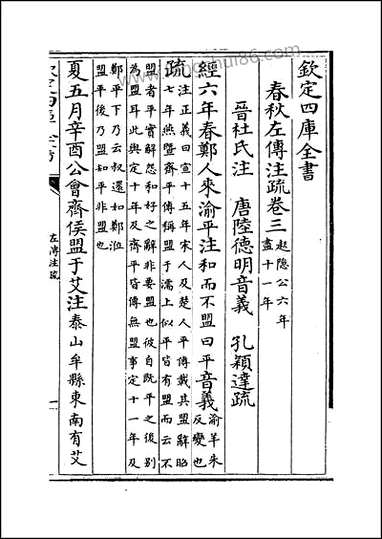 欽定四庫全書
春秋左傳注疏卷三
起隠公六年
盡十一年
晉杜氏注 唐陸德明音義 孔穎達疏
經六年春鄭人來渝平注和而不盟曰平音義
渝羊朱
反變也
疏
注正義曰宣十五年宋人及楚人平傳載其盟辭昭
七年燕暨齊平傳稱盟于濡上似平皆有盟而云不
盟者平實解怨和好之辭非要盟也彼自既平之後别
為盟耳此與定十年及齊平皆傳無盟事定十一年及
鄭平下乃云叔還如鄭涖
盟平後乃盟知平非盟也
夏五月辛酉公會齊侯盟于艾注泰山牟縣東南有艾
左傳注疏